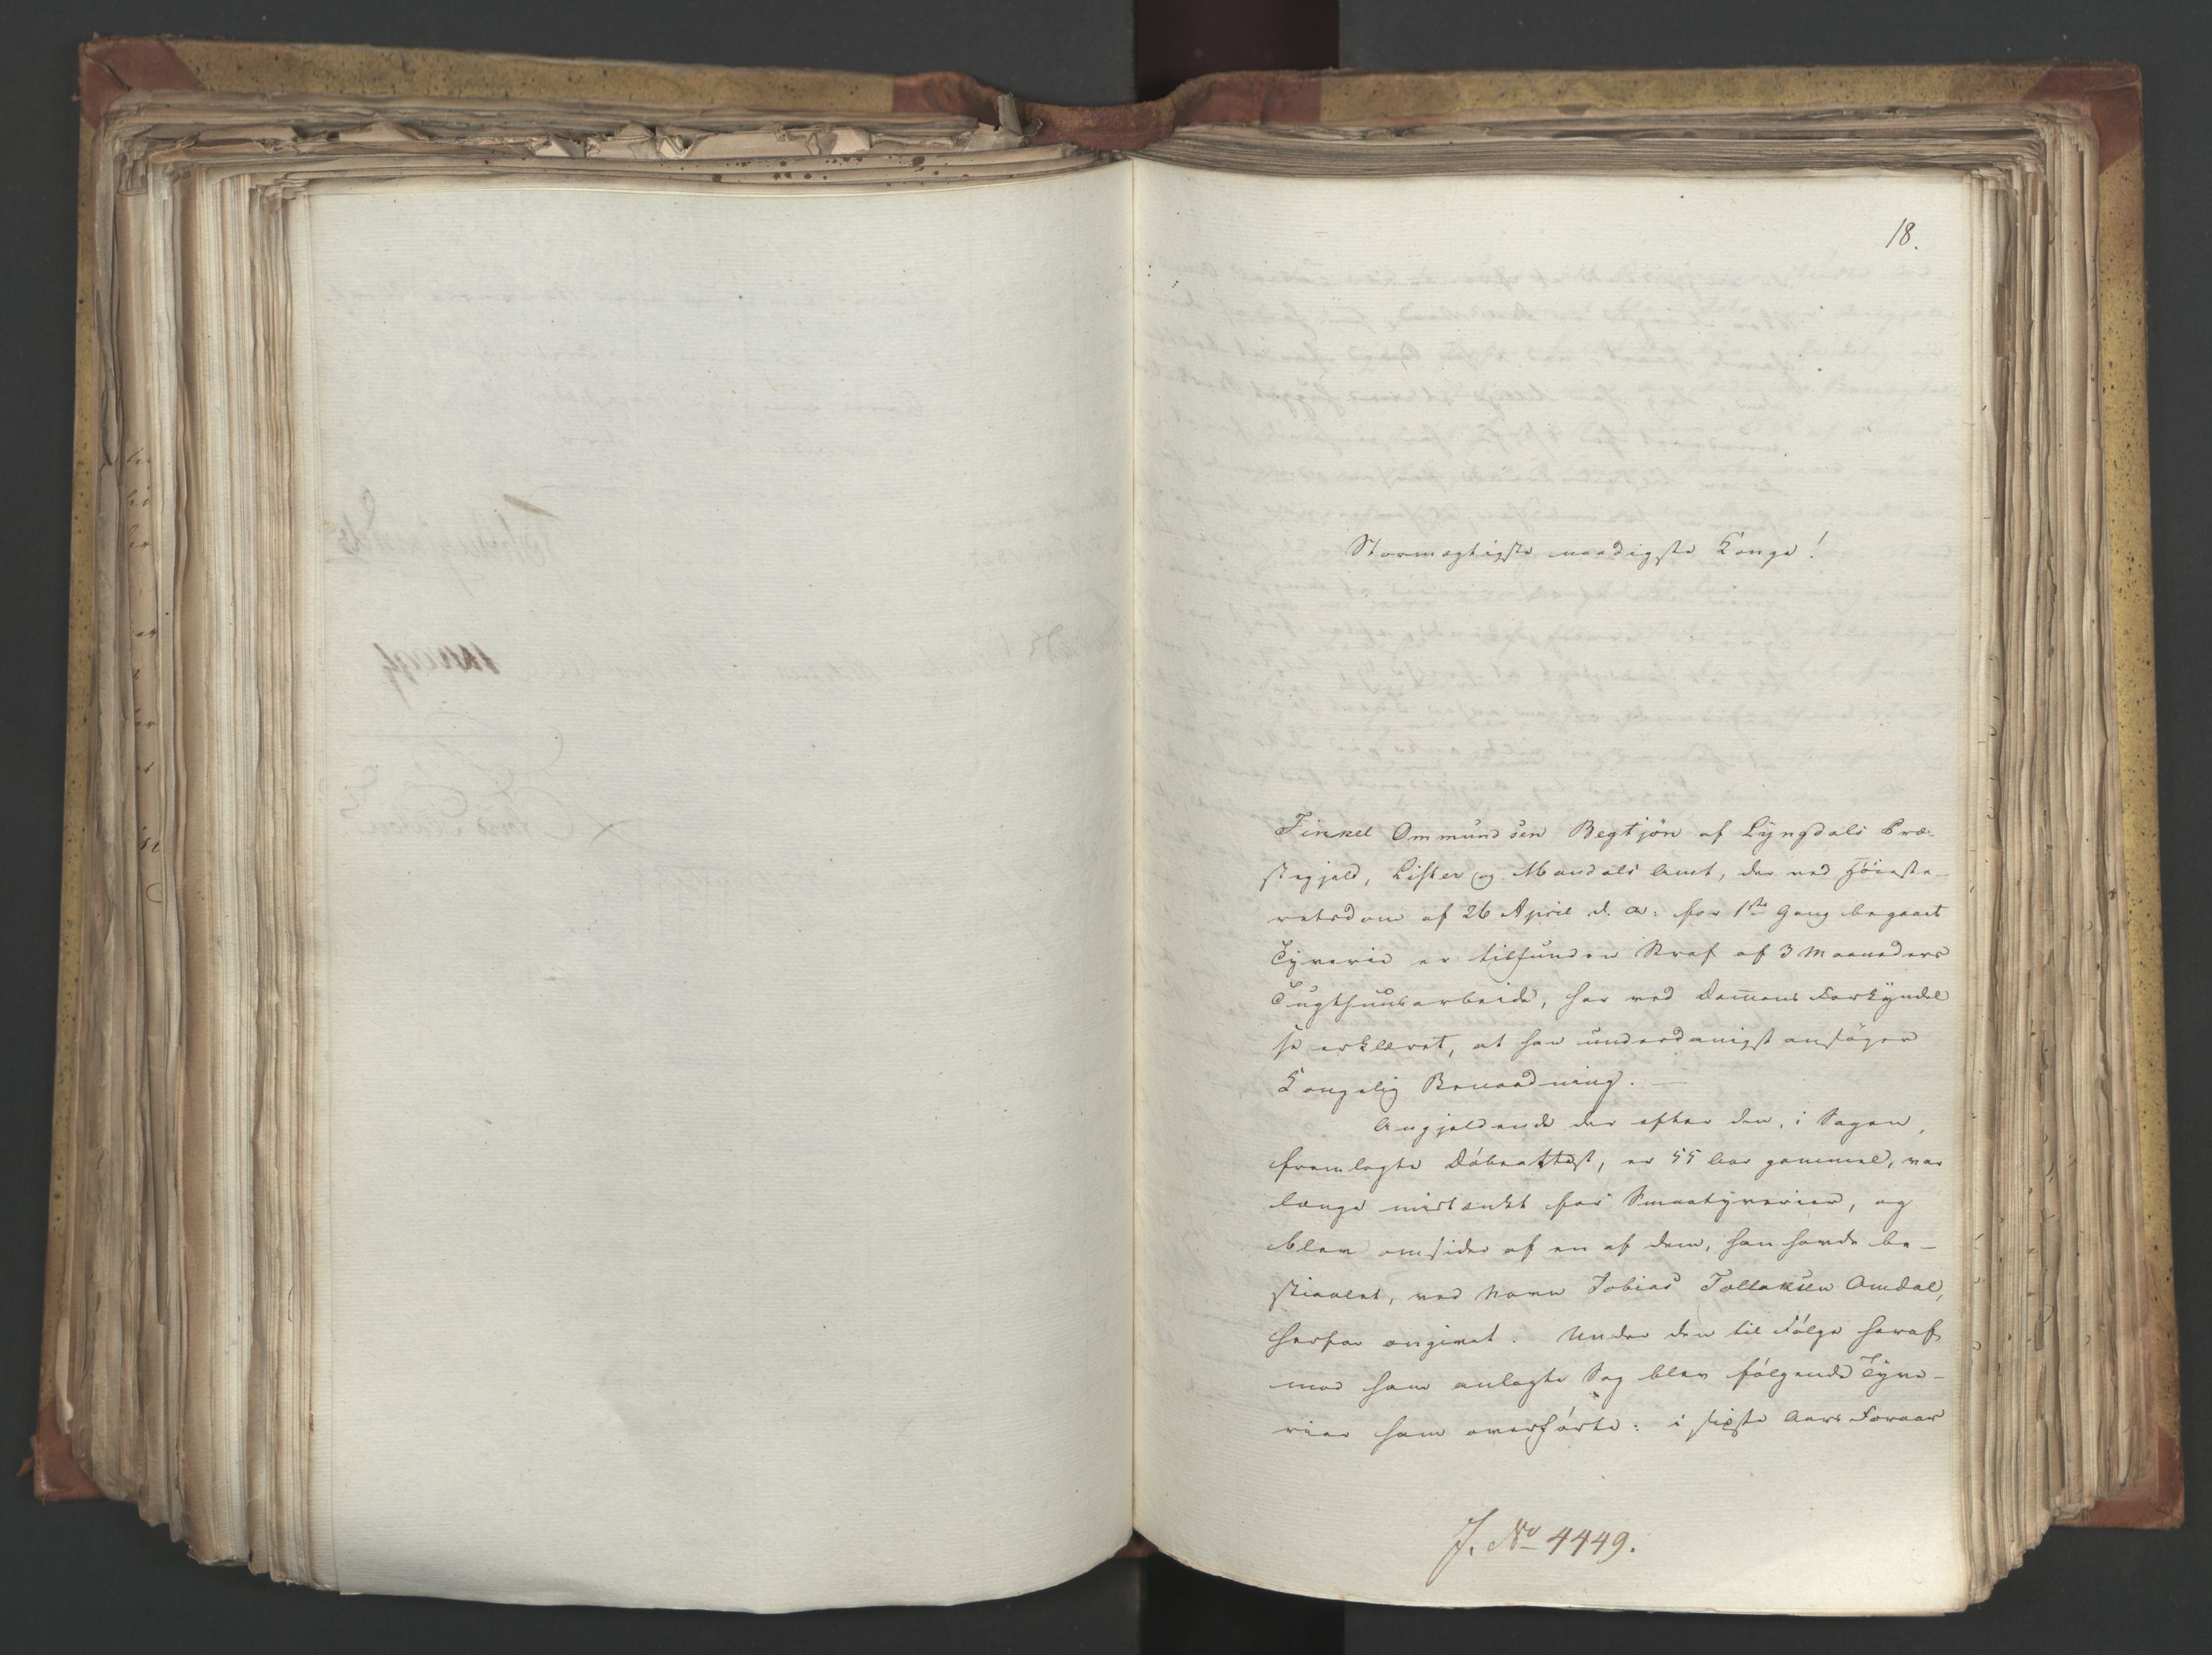 18.
Stormægtigste naadigste Konge!
Tinkel Ommundsen Begtjön af Lyngdals Præ-
stegjeld, Lister og Mandals Amt, der ved Höieste-
retsdom af 26 April d. A: for 1ste Gang begaaet
Tyverie er tilfunden Straf af 3 Maaneders
Tugthuusarbeide, har ved Dom̅ens Forkyndel
se erklæret, at han underdanigst ansöger
Kongelig Benaadning. —
Angjeldende der efter den, i Sagen,
fremlagte Döbeattest, er 55 Aar gammel, var
længe mistænkt for Smaatyverier, og
blev omsider af en af dem, han havde be-
stiaalet, ved Navn Tobias Tollaksen Omdal,
herfor angivet. Under den til Fölge heraf
mod ham anlagte Sag blev fölgende Tyve-
rier ham overförte: i sidste Aars Foraar
J. No 4449.